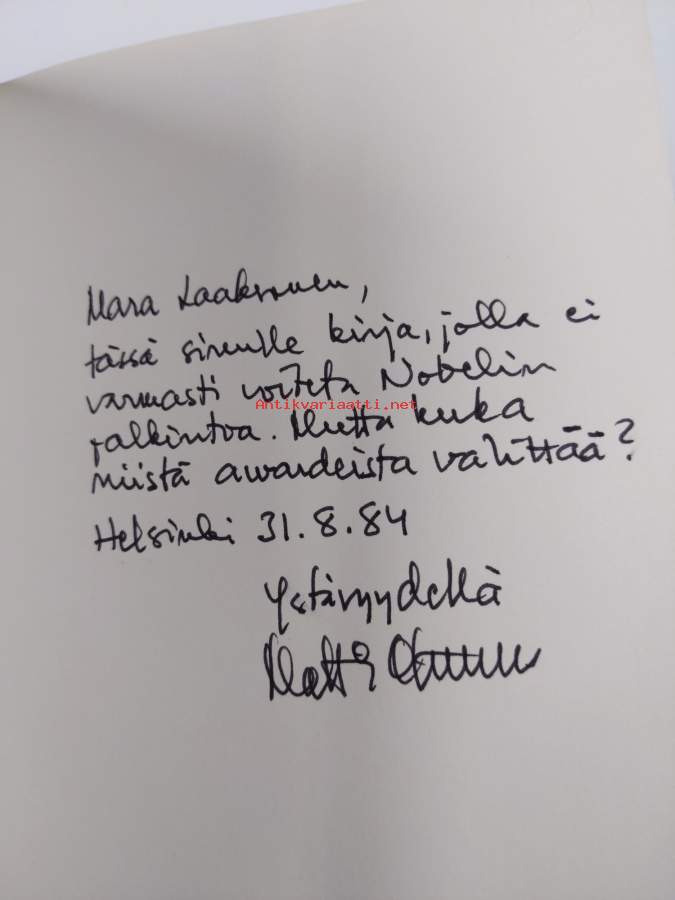 Mara Laaksonen,
tässä sinulle kirja, jolla ei
varmasti voiteta Nobelin
Antikvariaatti.net
palkintoa. Mutta kuka
niistä awardeista välittää?
Helsinki 31.8.84
Ystävyydellä
Matti